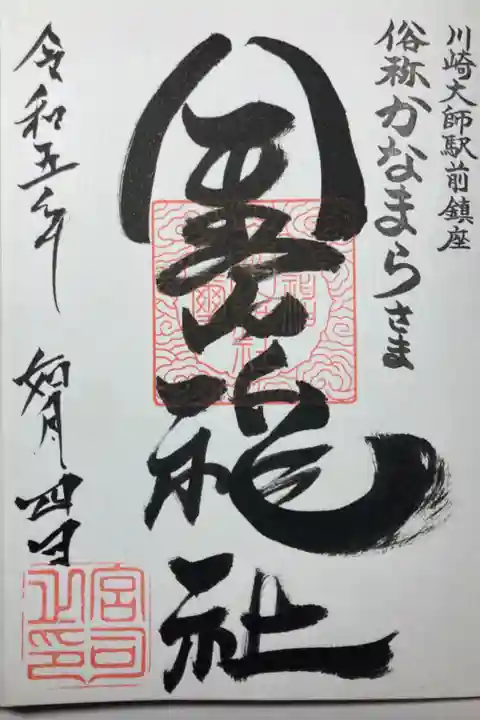 川崎大師駅前鎮座
俗称かなまらさま
金山神社
令和五年 如月 四日
宮司
之印